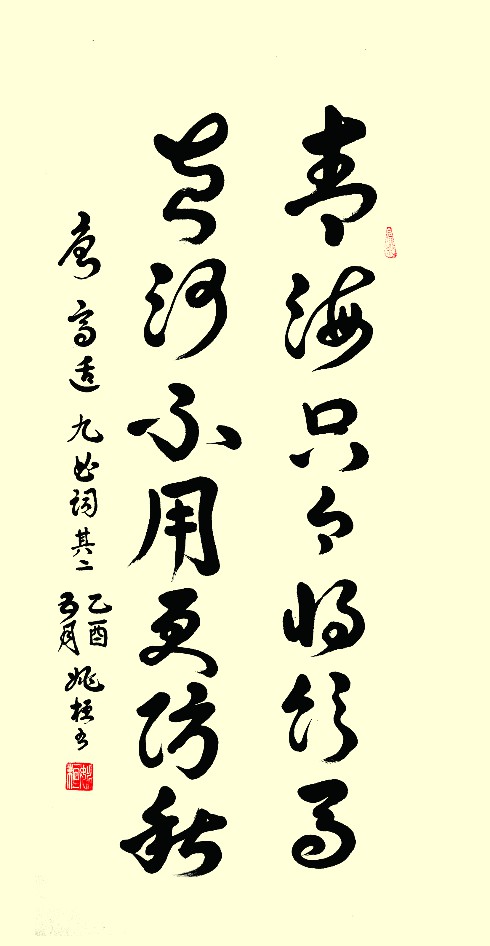 青海只今將飲馬
黃河不用更防秋
唐 高适 九曲詞其二
乙酉
五月
姚桓書